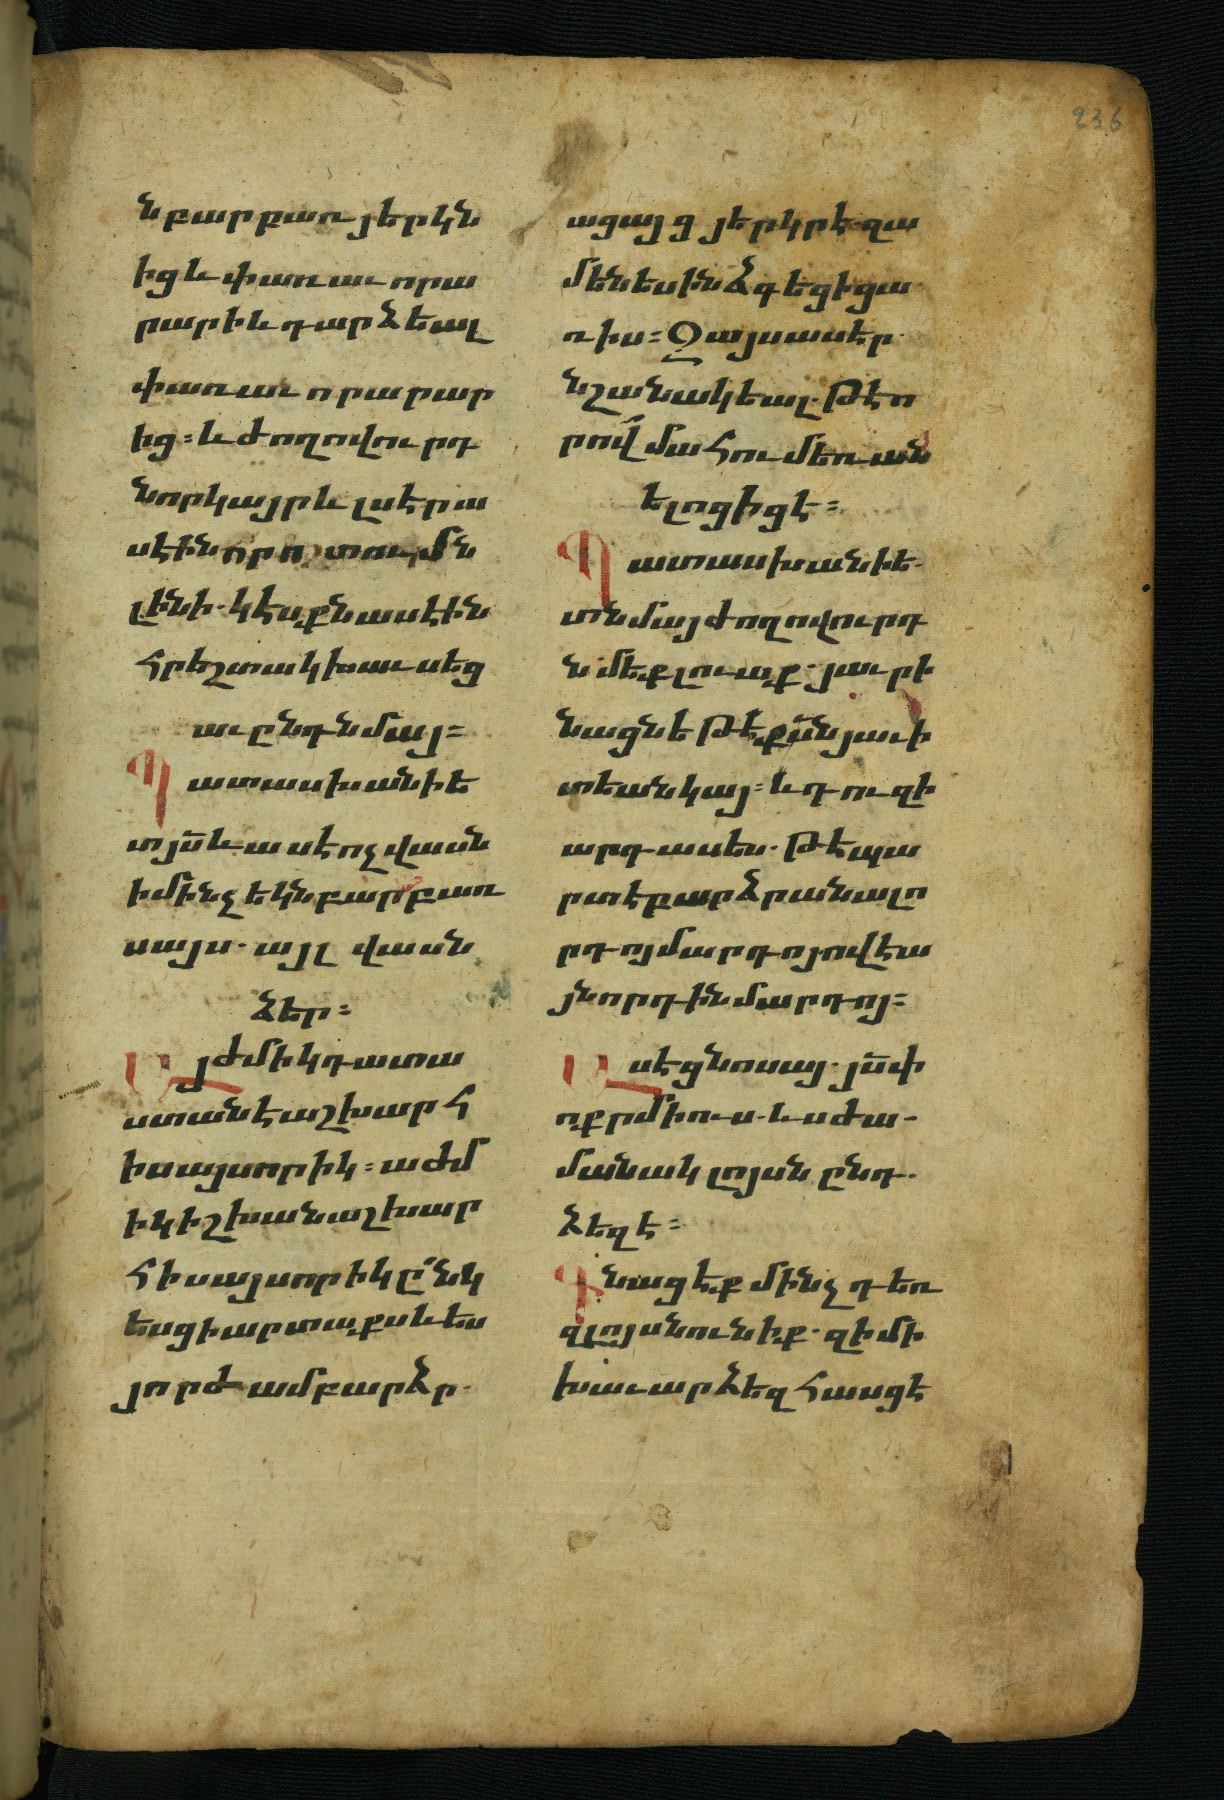 236
ն բարբառ յերկն
ից և փառաւորա
րարի և դարձեալ
փառաւորաբար
ից։ և ժողովուրդ
ն որ կայր և լսէր ա
սէին որոտումն
լինի. կէսքն ասէին
հրեշտակ խաւսեց
աւ ընդ նմայ։
Պատասխանի ե
տ յս̄ և ասէ ոչ վասն
իմ ինչ եկն բարբառ
ս այս. այլ վասն
ձեր։
Այժմիկ դատա
ստան է աշխարհ
իս այսորիկ։ աժմ
իկ իշխան աշխար
հիս այսորիկ ը̄նկ
եսցի արտաքս և ես
յորժամ բարձր.
ացայց յերկրէ զա
մենեսին ձգեցից ա
ռ իս։ Զայս ասէր.
նշանակեալ. թէ ո
րով մահու մեռան
ելոց իցէ։
Պատասխանի ե.
տ նմայ ժողովուրդ
ն մեք լուաք. յաւրի
նաց նե թէ քս̄ն յաւի
տեան կայ։ և դու զի
արդ ասես. թե պա
րտէ բարձրանալ ո
րդոյ մարդոյ ով է ա
յն որդին մարդոյ։
Ասէ ցնոսայ. յս̄ փ
ոքր մի ուս. ևս ժա-
մանակ լոյսն ընդ.
ձեզ է։
Գնացեք մինչ դեռ
զլոյսն ունիք. զի մի
խաւար ձեզ հասցէ